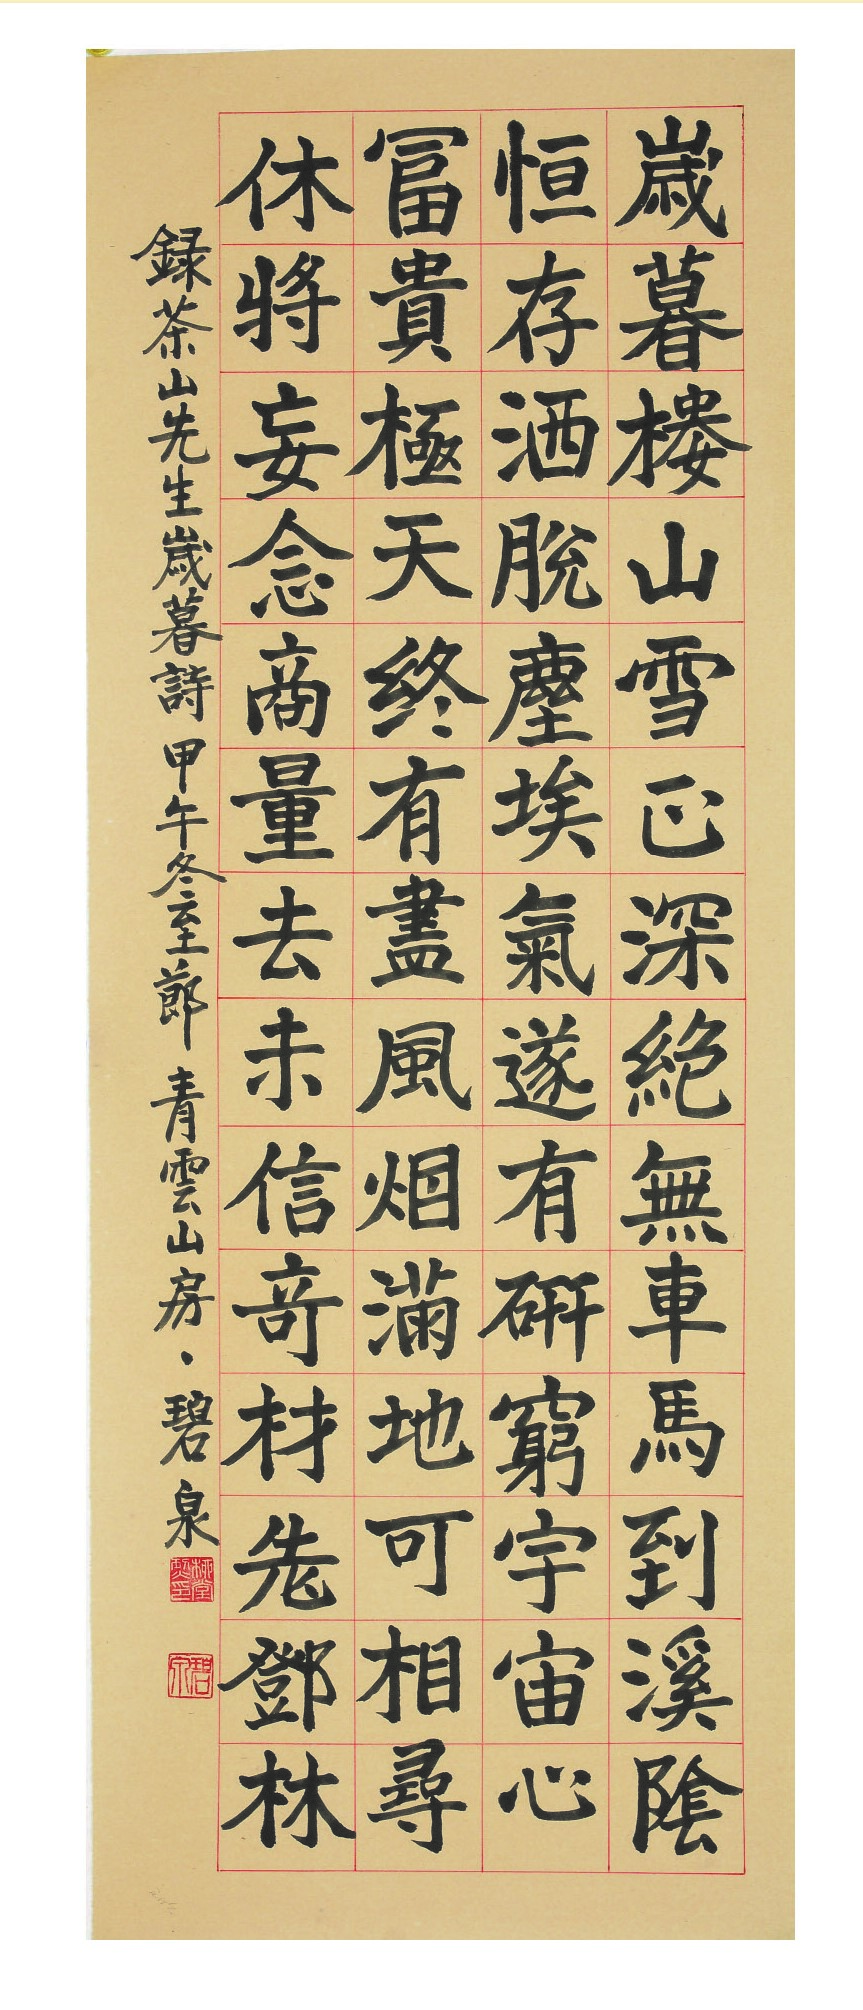 歲暮樓山雪正深絕無車馬到溪陰
恒存洒脫塵埃氣遂有研窮宇宙心
富貴極天終有盡風烟滿地可相尋
休將妄念商量去未信奇材先鄧林
録茶山先生歲暮詩甲午冬至節青雲山房・碧泉